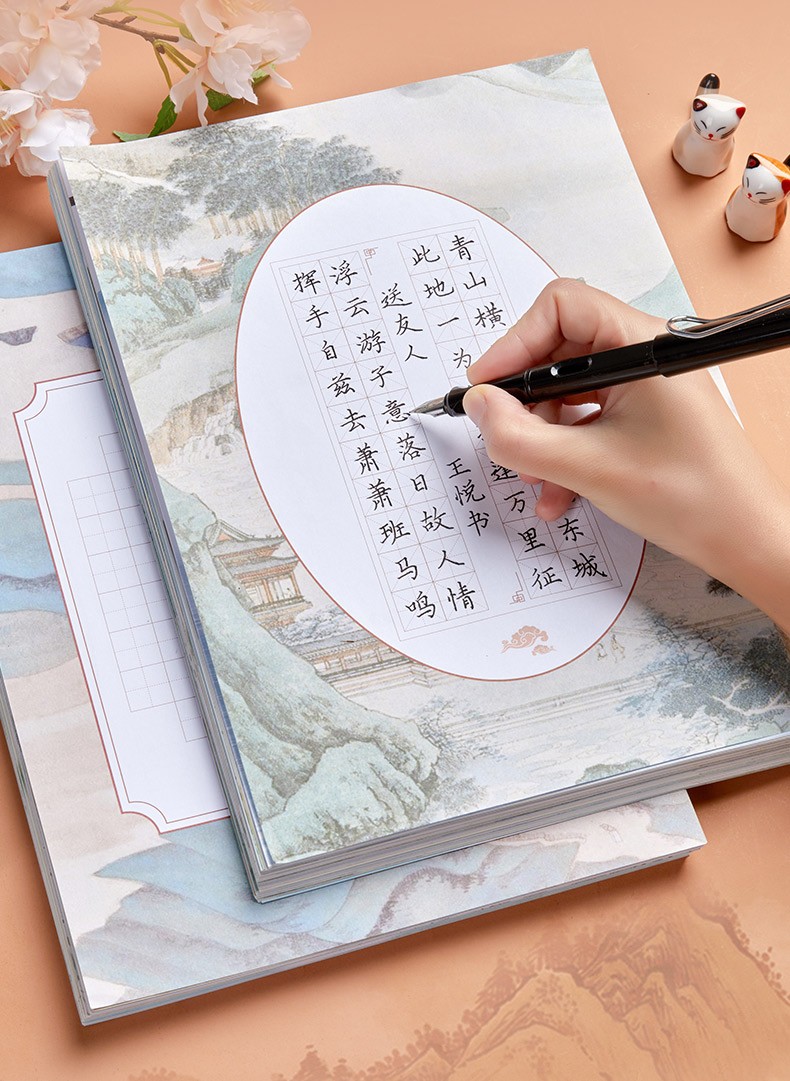 青山横东城
此地一为万里征
送友人
王悦书
浮云游子意落日故人情
挥手自兹去萧萧班马鸣